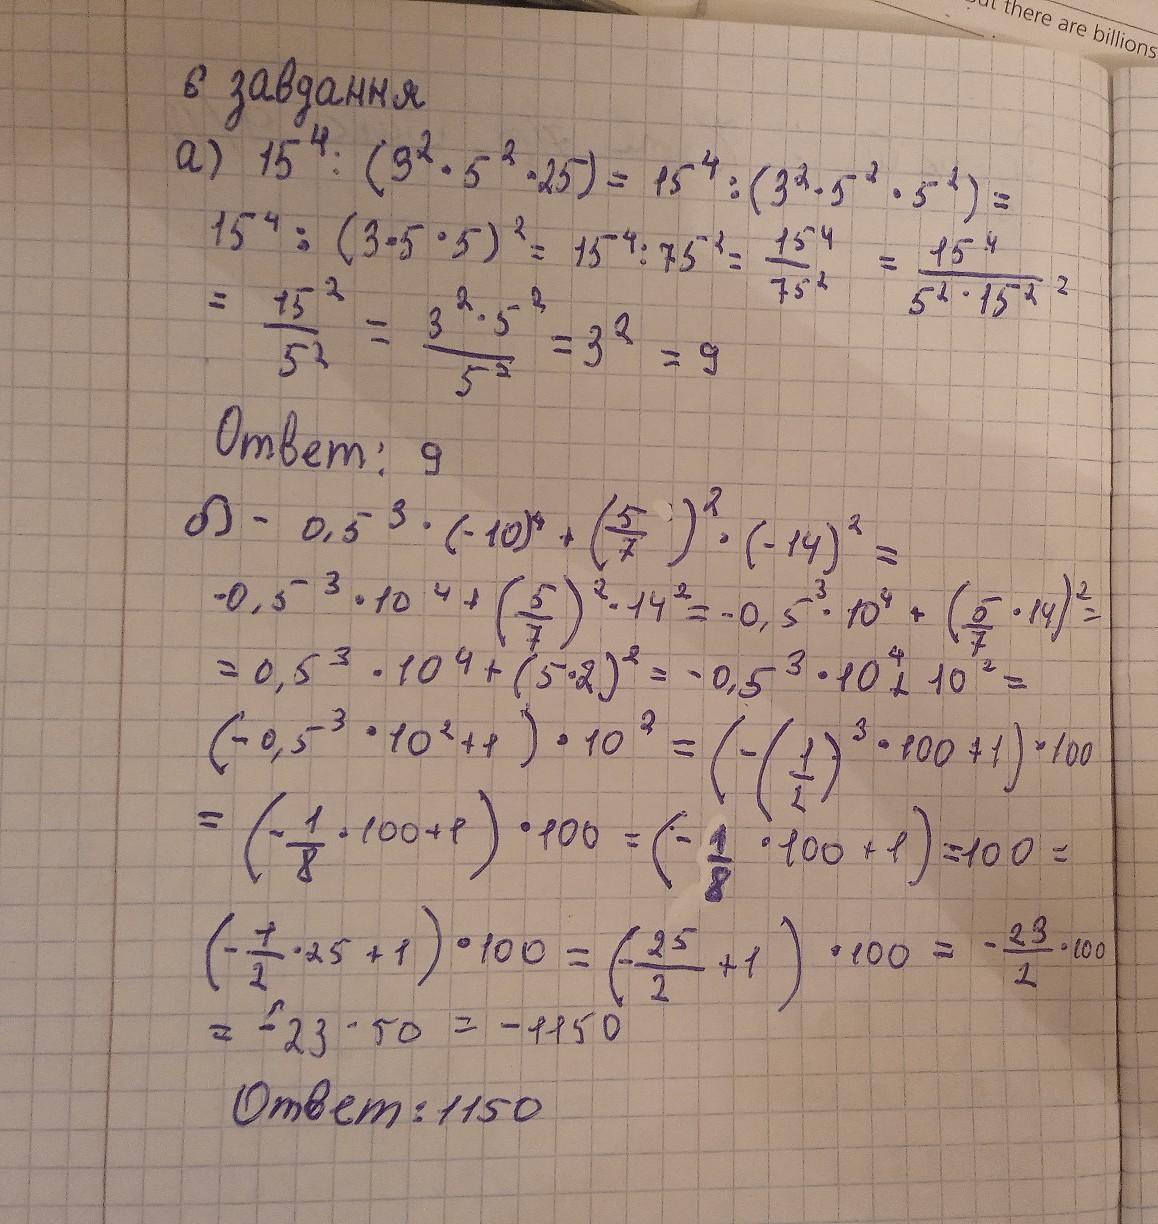 ut there are billions
6 завдання
а) 15⁴ : (3² · 5² · 25) = 15⁴ : (3² · 5² · 5²) =
15⁴ : (3 · 5 · 5)² = 15⁴ : 75² = 15⁴/75² = 15⁴/(5² · 15²) =
= 15²/5² = (3² · 5²)/5² = 3² = 9
Ответ: 9
б) - 0,5³ · (-10)⁴ + (5/7)² · (-14)² =
-0,5³ · 10⁴ + (5/7)² · 14² = -0,5³ · 10⁴ + (5/7 · 14)² =
= 0,5³ · 10⁴ + (5 · 2)² = -0,5³ · 10⁴ + 10² =
(-0,5³ · 10² + 1) · 10² = (-(1/2)³ · 100 + 1) · 100
= (-1/8 · 100 + 1) · 100 = (-1/8 · 100 + 1) = 100 =
(-1/2 · 25 + 1) · 100 = (-25/2 + 1) · 100 = -23/2 · 100
= -23 · 50 = -1150
Ответ: 1150